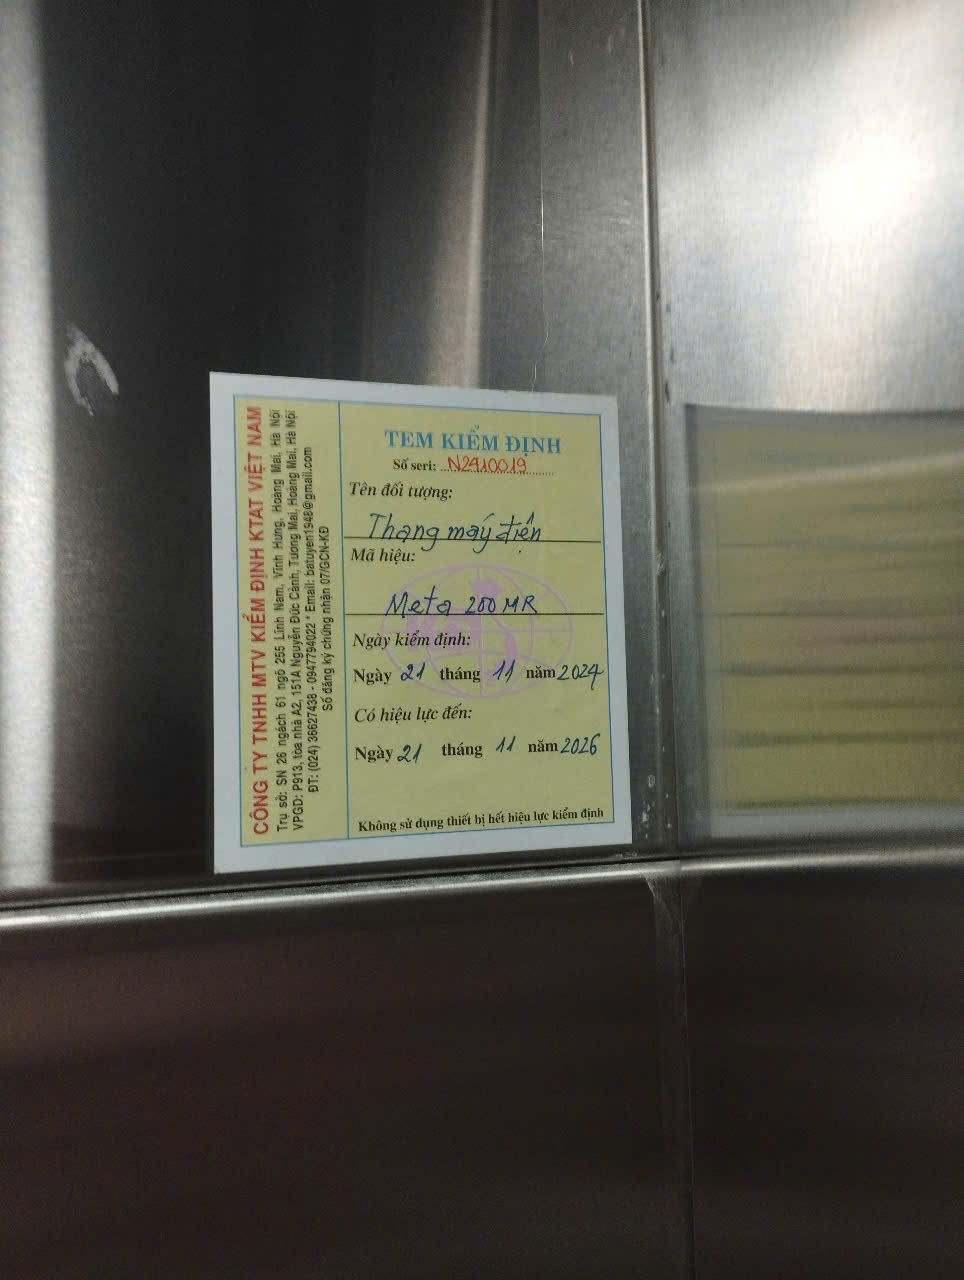 CÔNG TY TNHH MTV KIỂM ĐỊNH KTAT VIỆT NAM
Trụ sở: SN 26 ngách 61 ngõ 255 Lĩnh Nam, Vĩnh Hưng, Hoàng Mai, Hà Nội
VPGD: P913, tòa nhà A2, 151A Nguyễn Đức Cảnh, Tương Mai, Hoàng Mai, Hà Nội
ĐT: (024) 36627438 - 0947794022 * Email: batuyen1948@gmail.com
Số đăng ký chứng nhận 07/GCN-KĐ
TEM KIỂM ĐỊNH
Số seri: N2410019
Tên đối tượng:
Thang máy điện
Mã hiệu:
Meta 200 MR
Ngày kiểm định:
Ngày 21 tháng 11 năm 2024
Có hiệu lực đến:
Ngày 21 tháng 11 năm 2026
Không sử dụng thiết bị hết hiệu lực kiểm định